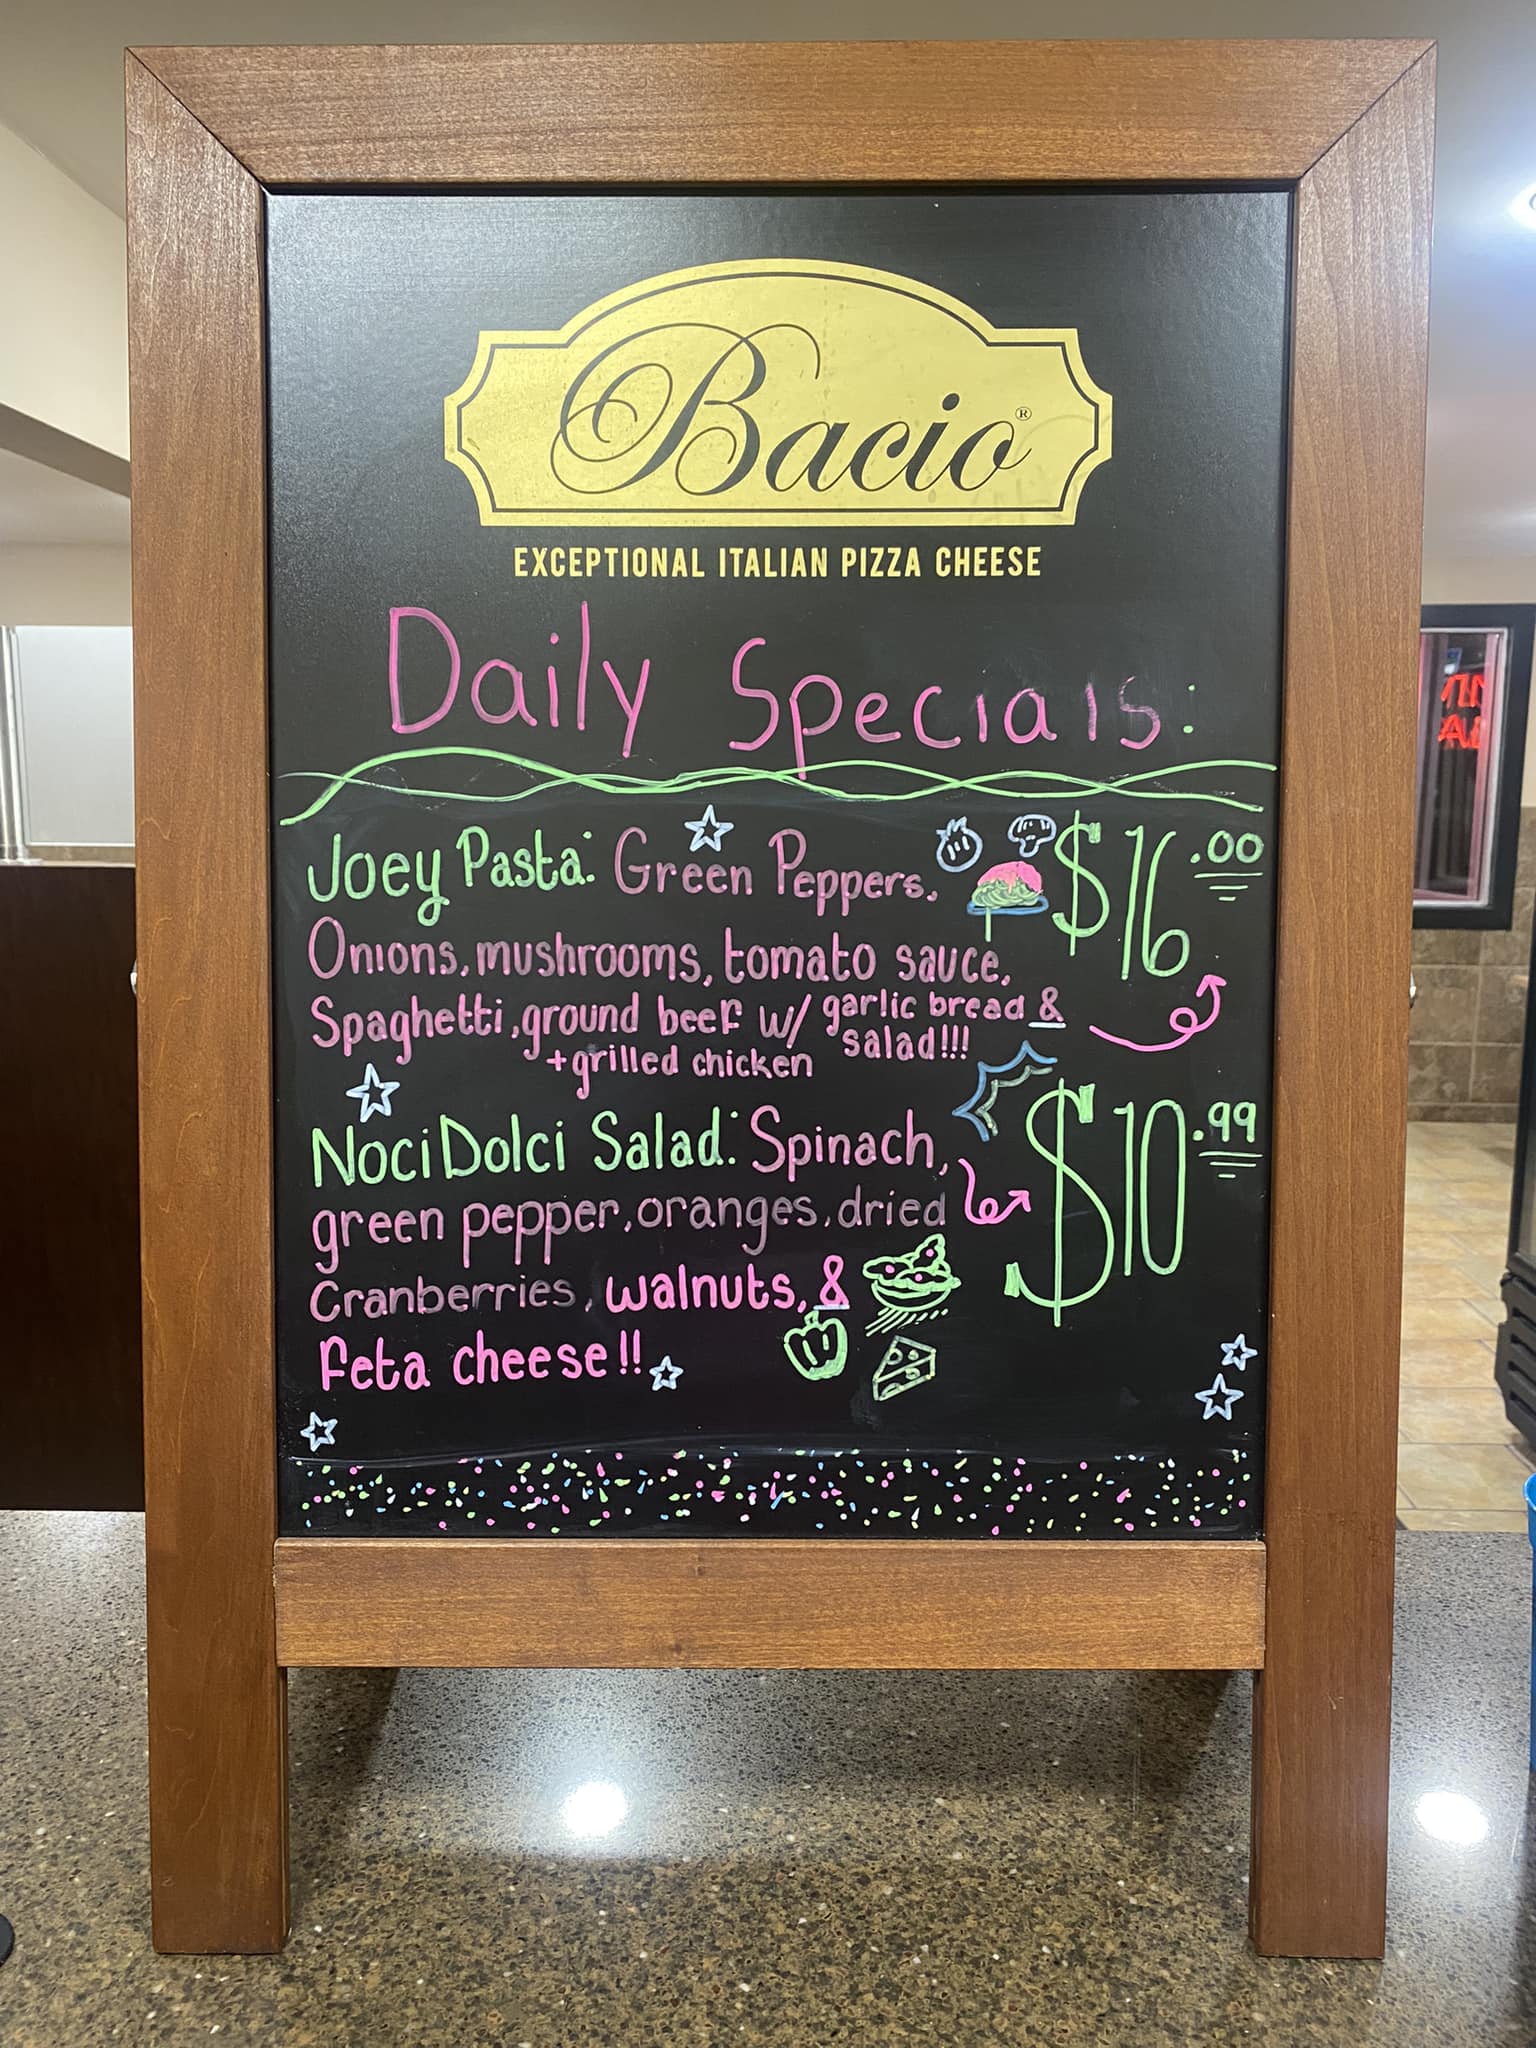 Bacio®
EXCEPTIONAL ITALIAN PIZZA CHEESE
Daily Specials:
Joey Pasta: Green Peppers, $16.00
Onions, mushrooms, tomato sauce,
Spaghetti, ground beef w/ garlic bread & salad!!!
+grilled chicken
Noci Dolci Salad: Spinach, $10.99
green pepper, oranges, dried
Cranberries, walnuts, &
feta cheese!!